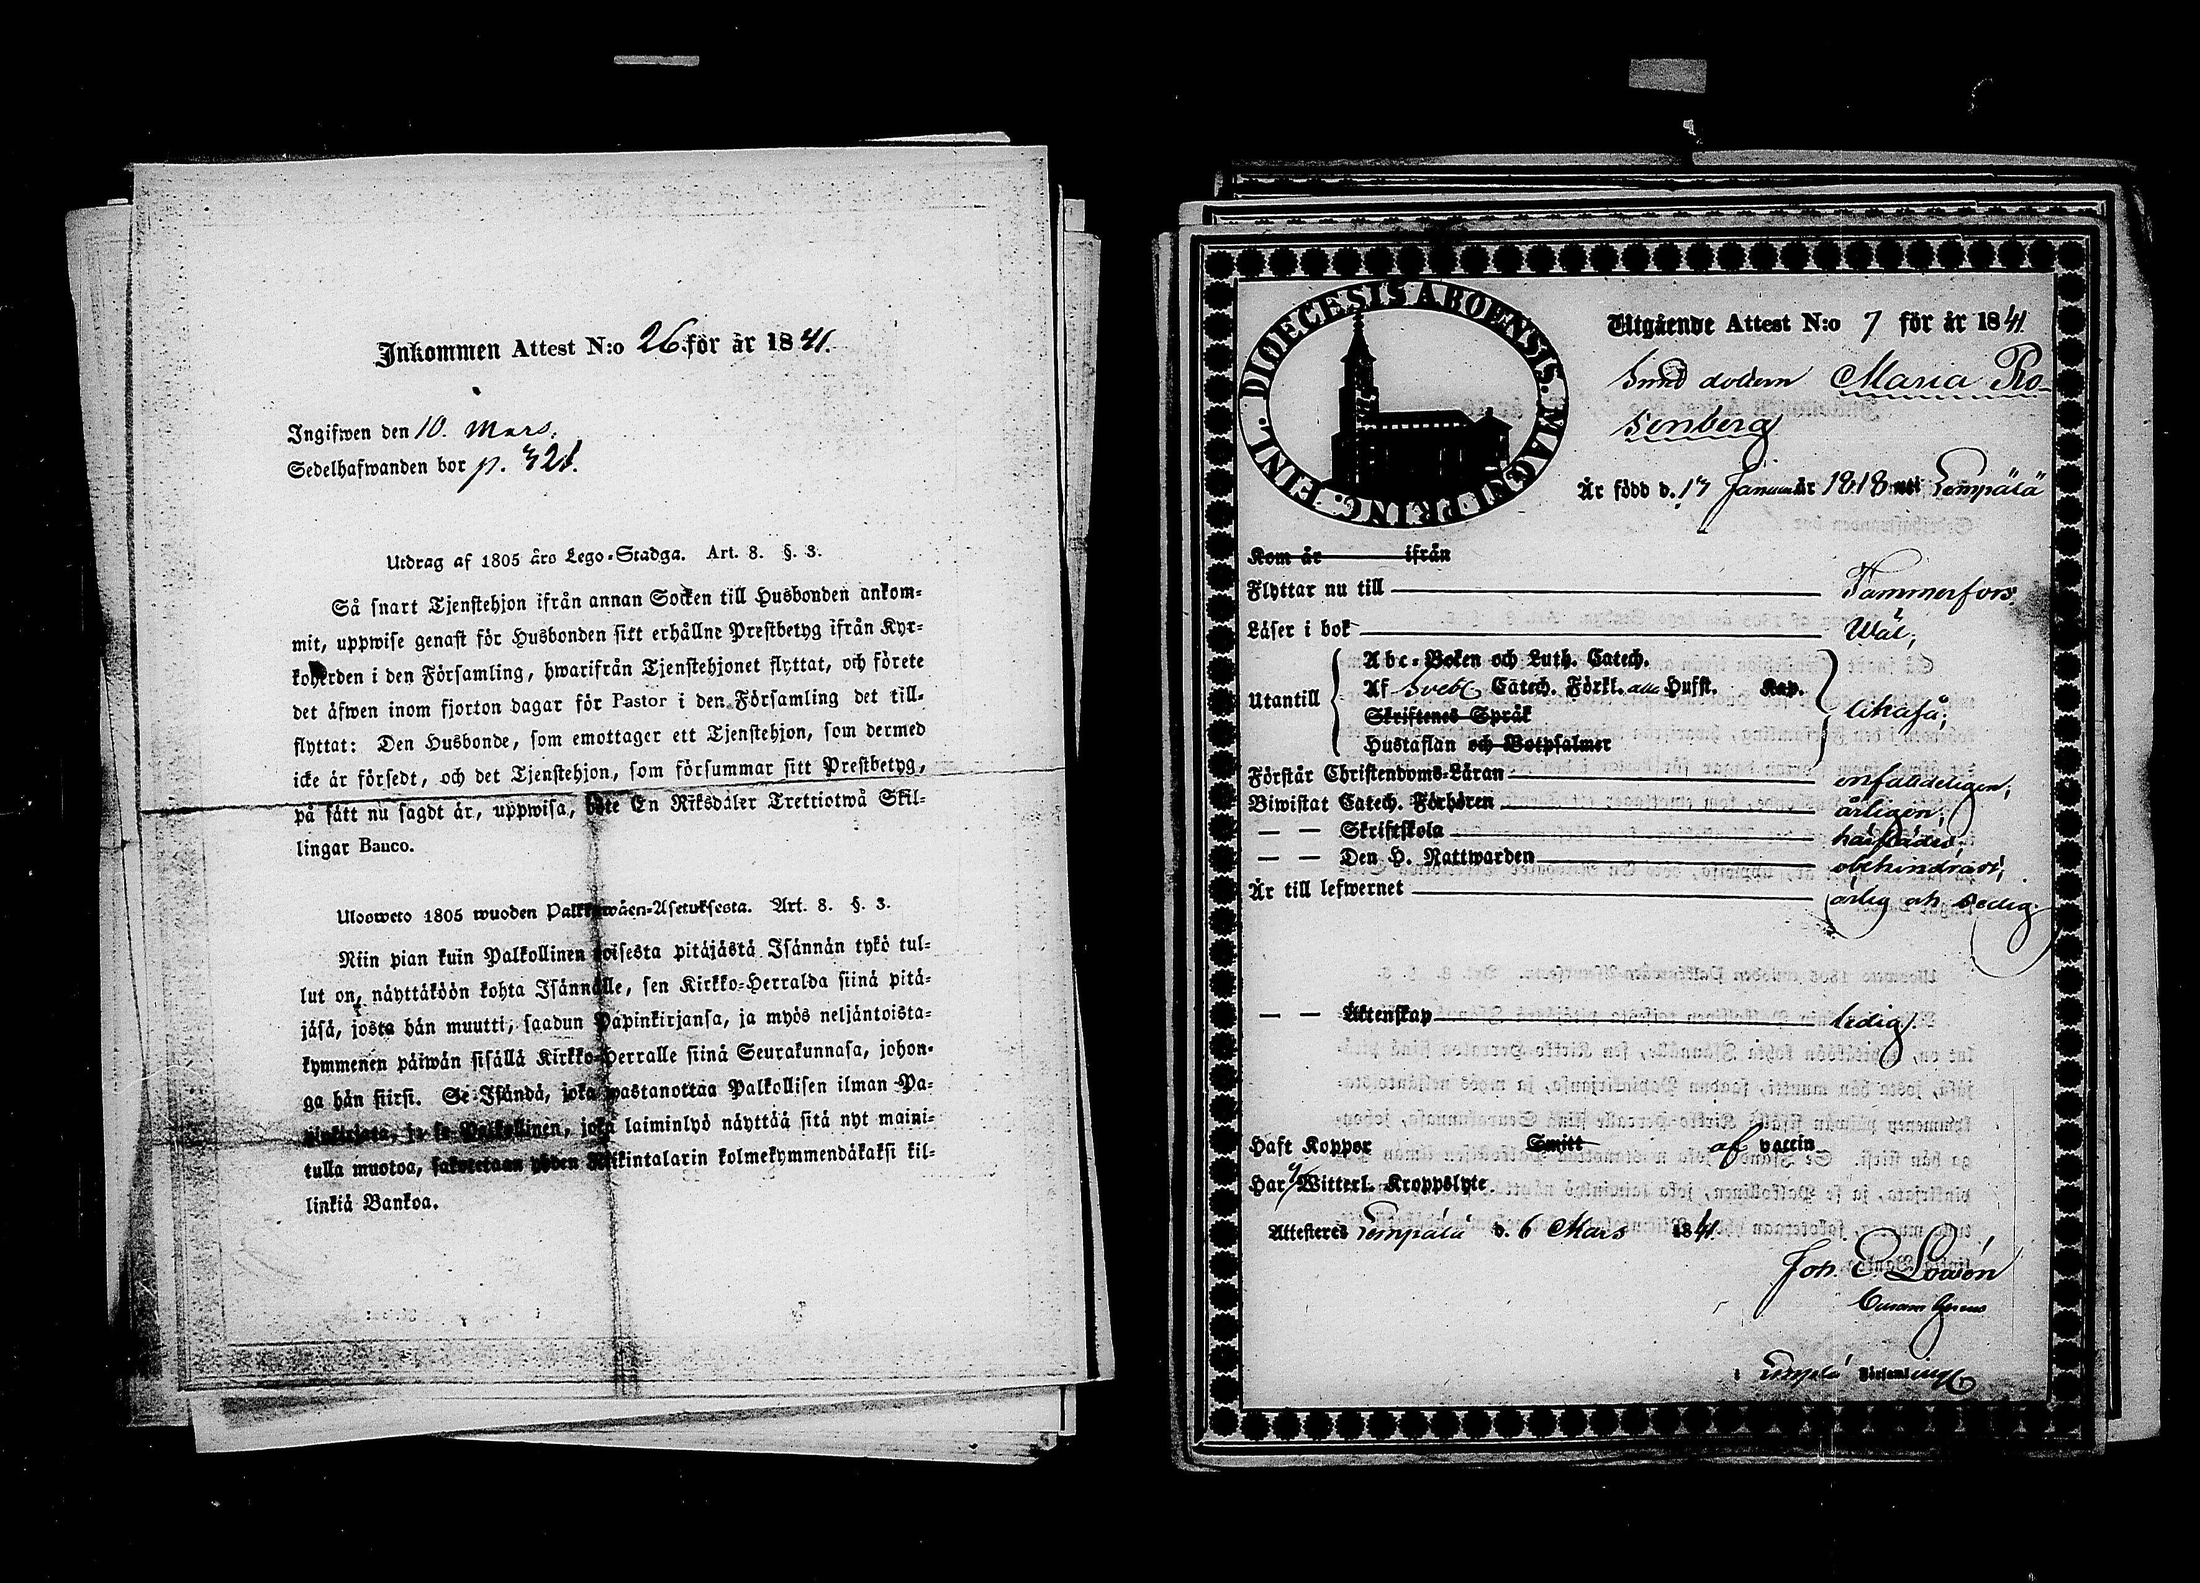 Inkommen Attest N:o 26. för år 1841.
Ingifwen den 10. Mars.
Sedelhafwanden bor p. 321.
Utdrag af 1805 års Lego-Stadga. Art. 8. §. 3.
Så snart Tjenstehjon ifrån annan Socken till Husbonden ankom-
mit, uppwise genast för Husbonden sitt erhållne Prestbetyg ifrån Kyr-
koherden i den Församling, hwarifrån Tjenstehjonet flyttat, och förete
det äfwen inom fjorton dagar för Pastor i den Församling det till-
flyttat: Den Husbonde, som emottager ett Tjenstehjon, som dermed
icke är försedt, och det Tjenstehjon, som försummar sitt Prestbetyg,
på sätt nu sagdt är, uppwisa, böte En Riksdaler Trettiotwå Skil-
lingar Banco.
Ulosweto 1805 wuoden Palkkawäen-Asetuksesta. Art. 8. §. 3.
Niin pian kuin Palkollinen toisesta pitäjästä Isännän tykö tul-
lut on, näyttäköön kohta Isännälle, sen Kirkko-Herralda siinä pitä-
jäsä, josta hän muutti, saadun Papinkirjansa, ja myös neljäntoista-
kymmenen päiwän sisällä Kirkko-Herralle siinä Seurakunnasa, johon-
ga hän siirsi. Se Isändä, joka wastanottaa Palkollisen ilman Pa-
pinkirjata, ja se Palkollinen, joka laiminlyö näyttää sitä nyt maini-
tulla muotoa, sakotetaan yhden Riikintalarin kolmekymmendäkaksi kil-
linkiä Bankoa.
DIOECESIS ABOENSIS. MAGNI PRINC. FINL.
Utgående Attest N:o 7 för år 1841
Smed dottern Maria Ro-
senberg
Är född d. 17 Januari år 1818 uti Lempälä
Kom år ifrån
Flyttar nu till Tammerfors.
Läser i bok Wäl;
Abc-Boken och Luth. Catech.
Utantill Af Sveb. Catech. Förkl. alla Hufst. Kap. likaså;
Skriftenes Språk
Hustaflan och Botpsalmer
Förstår Christendoms-Läran
Biwistat Catech. Förhören årligen;
— — Skriftskola härstädes;
— — Den H. Nattwarden obehindrad;
Är till lefwernet ärlig och sedig.
— — Äktenskap ledig
Haft Koppor Smitt af vaccin
Har Witterl. Kroppslyte
Attesteres Lempälä d. 6 Mars 1841.
Joh. E.
i Lempälä Församling